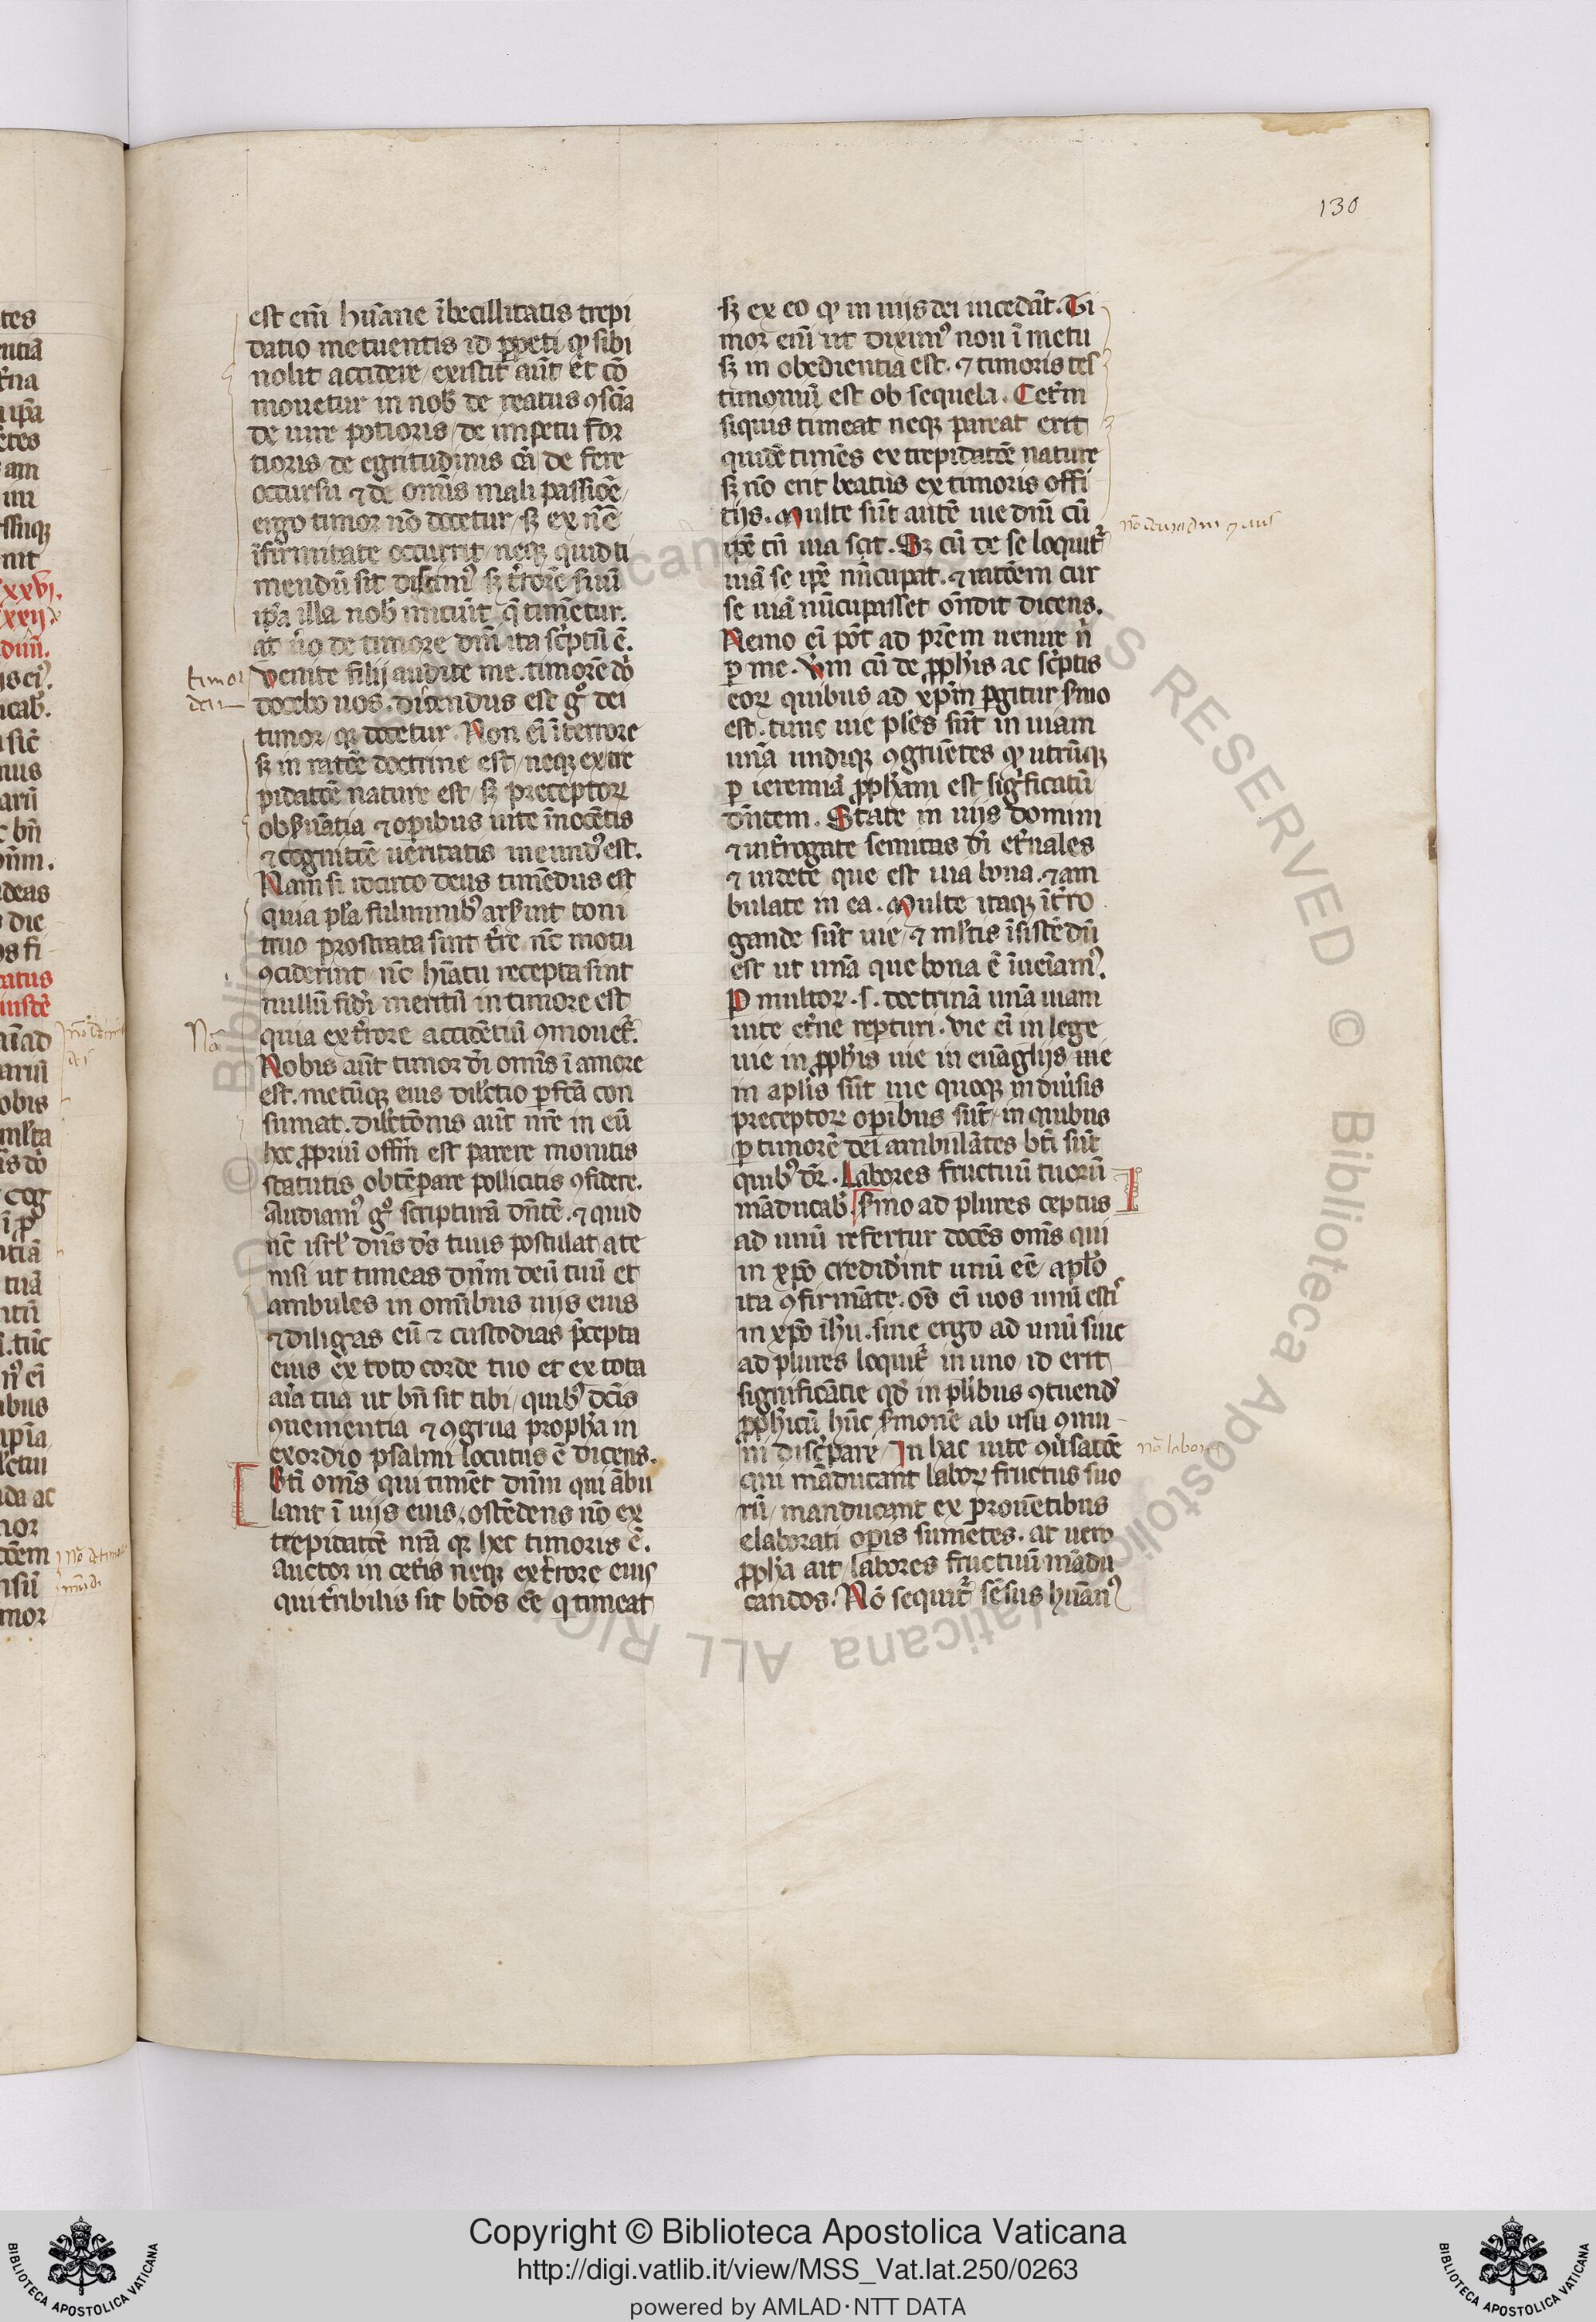 130
est eni̅ hu̅ane i̅becillitatis trepi
datio metuentis id p̲peti qͥ sibi
nolit accidere / existit au̅t et co̅
mouetur in nob̾ de reatus ꝯsci̅a
de iure potioris / de impetu for
tioris / de egritudinis ca̅ / de fere
occursu ⁊ de om̅is mali passio̅e /
ergo timor no̅ docetur / sꝫ ex n̅c̅e
i̅firmitate occurrit / neqꝫ quid ti
mendu̅ sit discimꝰ sꝫ t̾rore̅ suu̅
ip̅a illa nob̾ inicıu̅t q̅ time̅tur.
at u̾o de timore dn̅i ita sc̾ptu̅ e̅.
Venite filij audite me . timore̅ do̅
docebo uos . dicendus est gͦ dei
timor / qꝫ docetur . Non ei̅ i̅ terrore
sꝫ in rat̅o̅e doctrine est / neqꝫ ex tre
pidat̅o̅e nature est / sꝫ preceptoꝝ
obs̾ua̅tia ⁊ op̲ibus uite i̅noce̅tis
⁊ cognit̅o̅e ueritatis ineundꝰ est.
Nam si idcirco deus time̅dus est
quia pl̾a fulminibꝰ ars̾int toni
truo prostrata sint t̾re n̅c̅ motu
ꝯciderint / n̅c̅ hi̅atu recepta sint
nullu̅ fid̾i meritu̅ in timore est
quia ex t̾rore accide̅tiu̅ ꝯmouet̾.
Nobis au̅t timor d̅i om̅is i̅ amore
est . metu̅qꝫ eius dil̅ctio p̲fc̅a con
sumat . dil̅c̅o̅nis au̅t nr̅e in eu̅
hec p̲priu̅ offi̅m est parere monitis
statutis obte̅pare pollicitis ꝯfidere.
Audiamꝰ gͦ scriptura̅ dn̅te̅ . ⁊ quid
n̅c̅ isrl̅ dn̅s d̅s tuus postulat a te
nisi ut timeas dn̅m deu̅ tuu̅ et
ambules in omı̅bus uijs eius
⁊ diligas eu̅ ⁊ custodias p̾cepta
eius ex toto corde tuo et ex tota
ai̅a tua ut bn̅ sit tibi / quibꝰ dc̅is
ꝯuenientia ⁊ ꝯgrua proph̅a in
exordio psalmi locutus e̅ dicens.
Bt̅i om̅s qui time̅t dn̅m qui a̅bu
lant i̅ uijs eius / oste̅dens no̅ ex
trepidat̅o̅e nr̅a qꝫ hec timoris e̅.
auctor in cet̾is neqꝫ ex t̾rore eius
qui t̾ribilis sit bt̅os e̅e̅ q̾ timeat
timor
dei
No̅
sꝫ ex eo qͥ in uijs dei inceda̅t . Ti
mor eni̅ ut diximꝰ non i̅ metu
sꝫ in obedientia est . ⁊ timoris tes
timoniu̅ est obsequela . Cet̾m
siquis timeat neqꝫ pareat erit
quide̅ time̅s ex trepidat̅o̅e nature
sꝫ no̅ erit beatus ex timoris offi
tijs . Multe su̅t aute̅ uie dn̅i cu̅
ip̅e cu̅ uia scit . Sꝫ cu̅ de se loquit̾
uia̅ se ip̅e nu̅cupat . ⁊ rat̅o̅em cur
se uia̅ nu̅cupasset on̅dit dicens.
Nemo ei̅ po̅t ad pr̅em uenire n̾
p̲ me . V̾m cu̅ de p̲ph̅is ac sc̾ptis
eoꝝ quibus ad xp̅m p̲gitur s̾mo
est . tunc uie pl̾es su̅t in uiam
una̅ undiqꝫ ꝯgrue̅tes qͥ utru̅qꝫ
p̲ ieremia̅ p̲ph̅am est sig̾ficatu̅
dn̅tem . State in uijs domini
⁊ int̾rogate semitas d̅i et̾nales
⁊ uidete que est uia bona . ⁊ am
bulate in ea . Multe itaqꝫ i̅t̾ro
gande su̅t uie / ⁊ ml̾tis i̅siste̅du̅
est ut una̅ que bona e̅ i̅uei̅amꝰ.
P̲ multoꝝ . s . doctrina̅ una̅ uiam
uite et̾ne rep̲turi . Vie ei̅ in lege
uie in p̲ph̅is uie in eua̅glijs uie
in apl̅is su̅t uie quoqꝫ in diu̾sis
preceptoꝝ op̲ibus su̅t / in quibus
p̲ timore̅ dei ambula̅tes bt̅i su̅t
quibꝰ dr̅ . Labores fructuu̅ tuoru̅
ma̅ducab̾ . S̾mo ad plures ceptus
ad unu̅ refertur doce̅s om̅s qui
in xp̅o credid̾int unu̅ e̅e̅ / apl̅o
ita ꝯfirma̅te . om̅s ei̅ uos unu̅ estis
in xp̅o ih̅u . siue ergo ad unu̅ siue
ad plures loquit̾ in uno / id erit
significa̅tie qd̾ in pl̾ibus ꝯtuend̾
p̲ph̅icu̅ hu̅c s̾mone̅ ab usu ꝯmu
ni disc̾pare / In hac uite ꝯu̾sat̅o̅e
qui ma̅ducant laboꝝ fructus suo
ru̅ / manducant ex proue̅tibus
elaborati op̲is sume̅tes . at uero
p̲ph̅a ait / labores fructuu̅ ma̅du
candos . No̅ sequit̾ se̅sus hu̅anꝰ
Copyright © Biblioteca Apostolica Vaticana
http://digi.vatlib.it/view/MSS_Vat.lat.250/0263
powered by AMLAD·NTT DATA
BIBLIOTECA APOSTOLICA VATICANA
BIBLIOTECA APOSTOLICA VATICANA